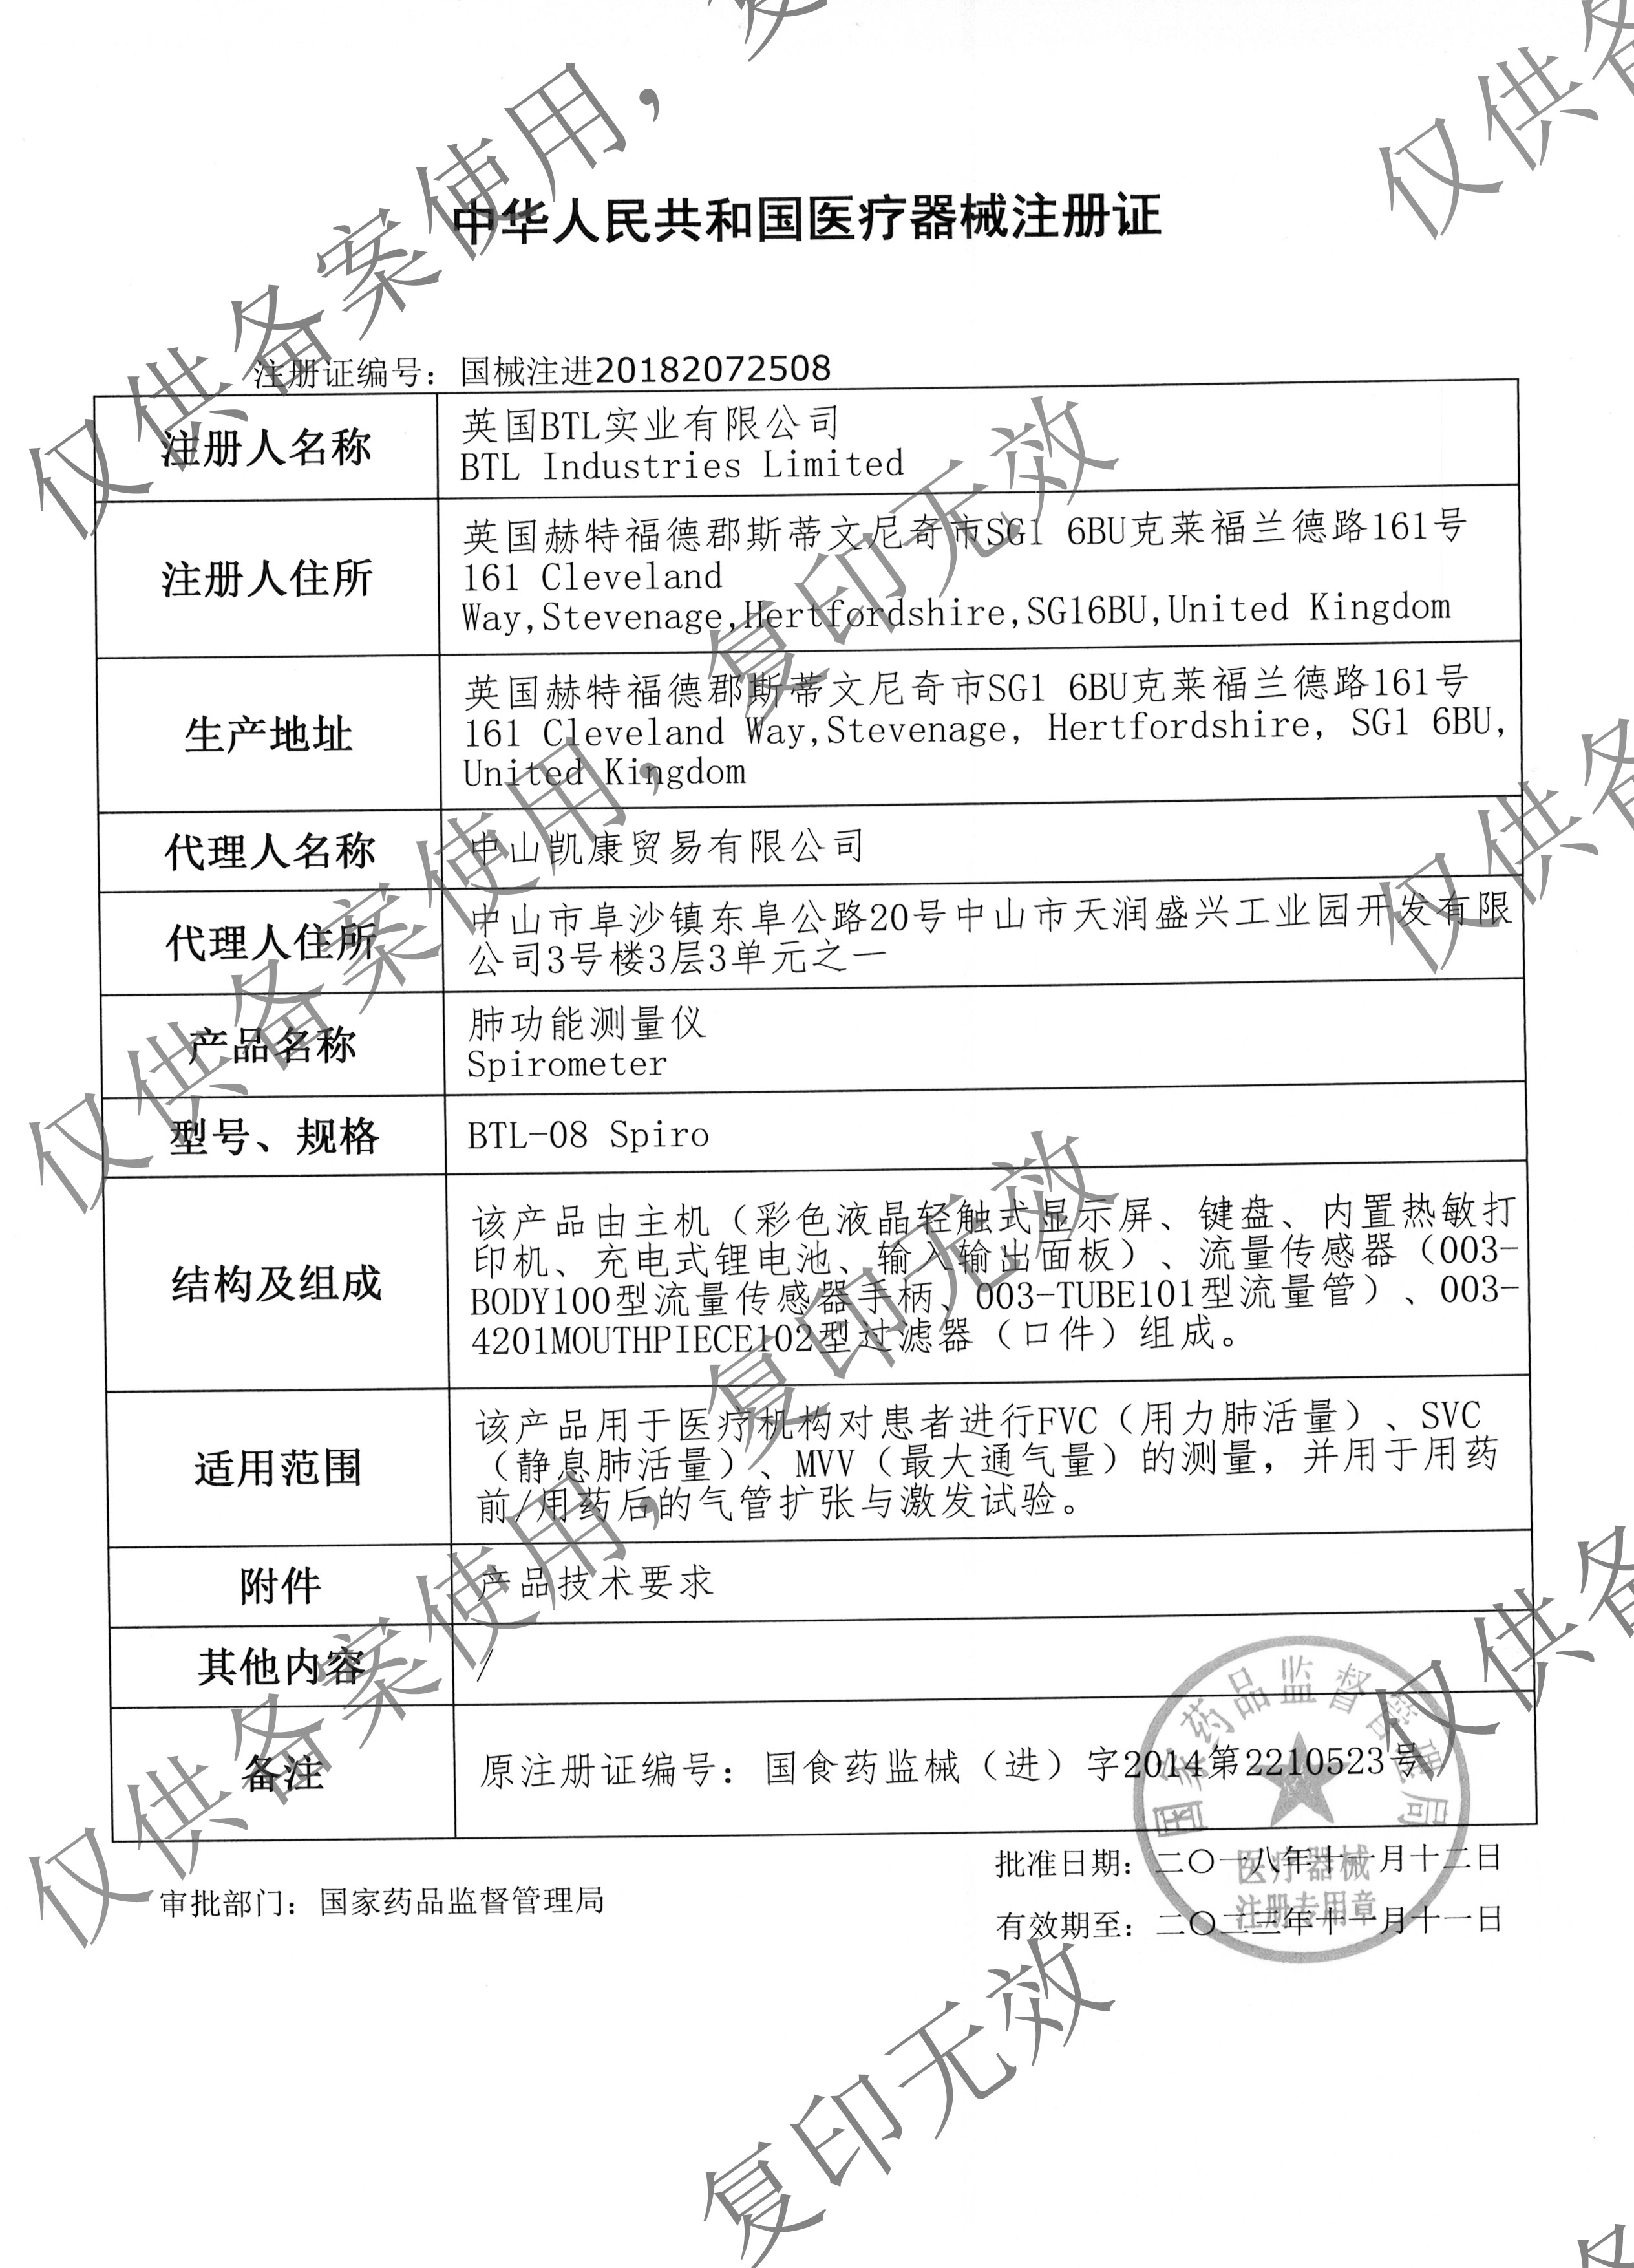 中华人民共和国医疗器械注册证
注册证编号：国械注进20182072508
注册人名称
英国BTL实业有限公司
BTL Industries Limited
注册人住所
英国赫特福德郡斯蒂文尼奇市SG1 6BU克莱福兰德路161号
161 Cleveland
Way,Stevenage,Hertfordshire,SG16BU,United Kingdom
生产地址
英国赫特福德郡斯蒂文尼奇市SG1 6BU克莱福兰德路161号
161 Cleveland Way,Stevenage, Hertfordshire, SG1 6BU,
United Kingdom
代理人名称
中山凯康贸易有限公司
代理人住所
中山市阜沙镇东阜公路20号中山市天润盛兴工业园开发有限
公司3号楼3层3单元之一
产品名称
肺功能测量仪
Spirometer
型号、规格
BTL-08 Spiro
结构及组成
该产品由主机（彩色液晶轻触式显示屏、键盘、内置热敏打
印机、充电式锂电池、输入输出面板）、流量传感器（003-
BODY100型流量传感器手柄、003-TUBE101型流量管）、003-
4201MOUTHPIECE102型过滤器（口件）组成。
适用范围
该产品用于医疗机构对患者进行FVC（用力肺活量）、SVC
（静息肺活量）、MVV（最大通气量）的测量，并用于用药
前/用药后的气管扩张与激发试验。
附件
产品技术要求
其他内容
/
备注
原注册证编号：国食药监械（进）字2014第2210523号
审批部门：国家药品监督管理局
批准日期：二〇一八年十一月十二日
有效期至：二〇二三年十一月十一日
国家药品监督管理局
医疗器械
注册专用章
仅供备案使用，复印无效
仅供备案使用，复印无效
仅供备案使用，复印无效
仅供备
仅供备
仅供备